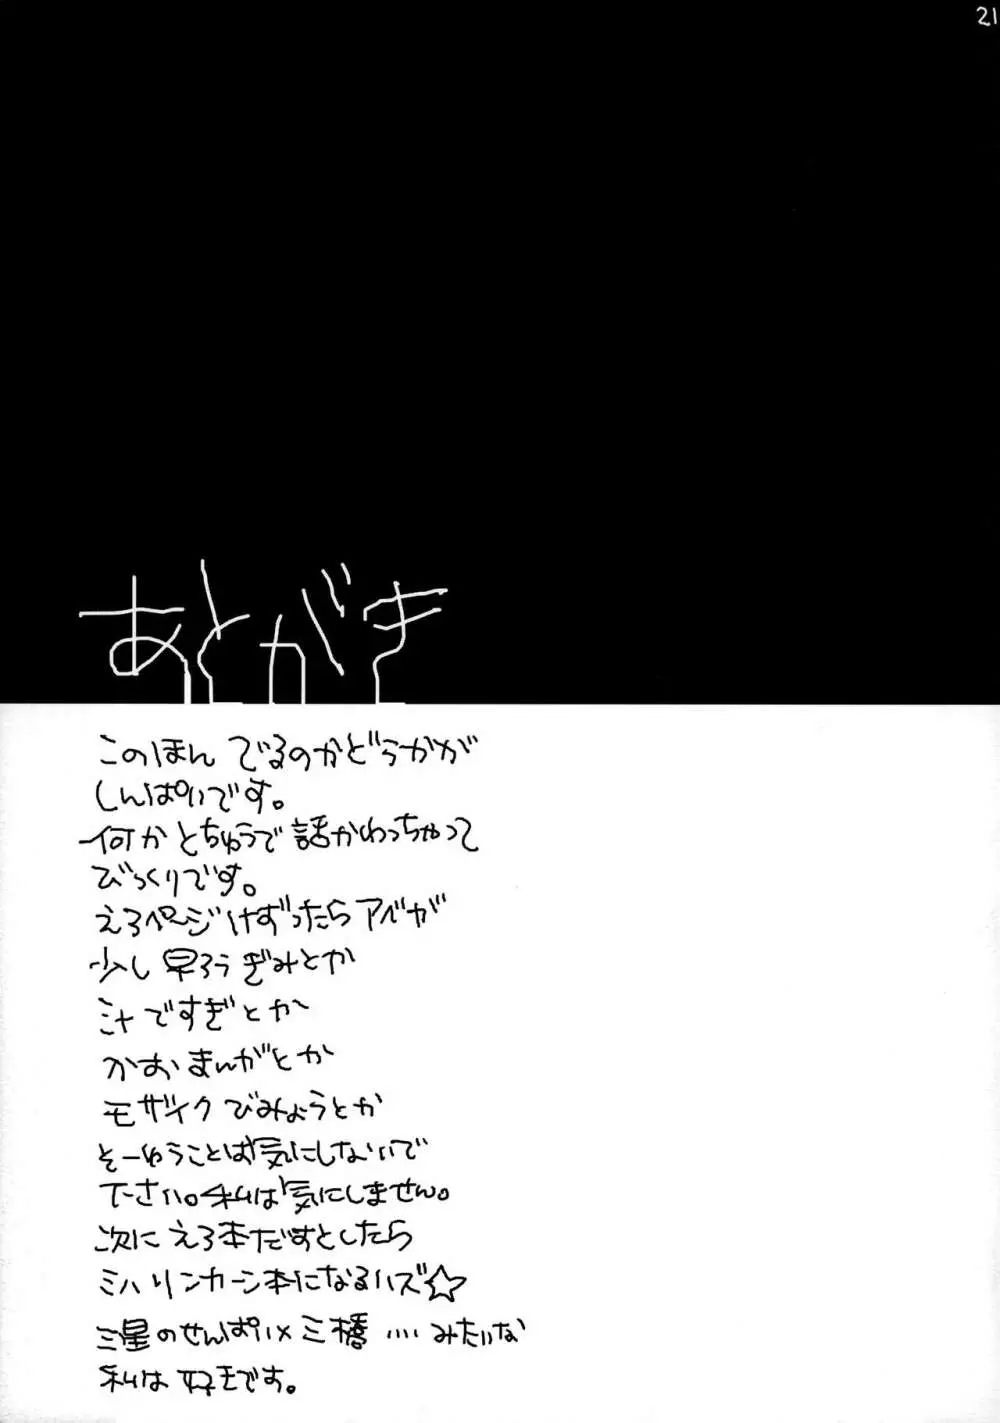 21
あとがき
このほん でるのかどうかが
しんぱいです。
何か とちゅうで 話かわっちゃって
びっくりです。
えろページ けずったらアベが
少し 早ろう ぎみとか
汁ですぎとか
かおまんがとか
モザイク びみょうとか
そーゆうことは気にしないで
下さい。私は気にしません。
次に えろ本だすとしたら
ミハリンカーン本になるハズ☆
三星のせんぱい×三橋 ‥‥みたいな
私は 好きです。